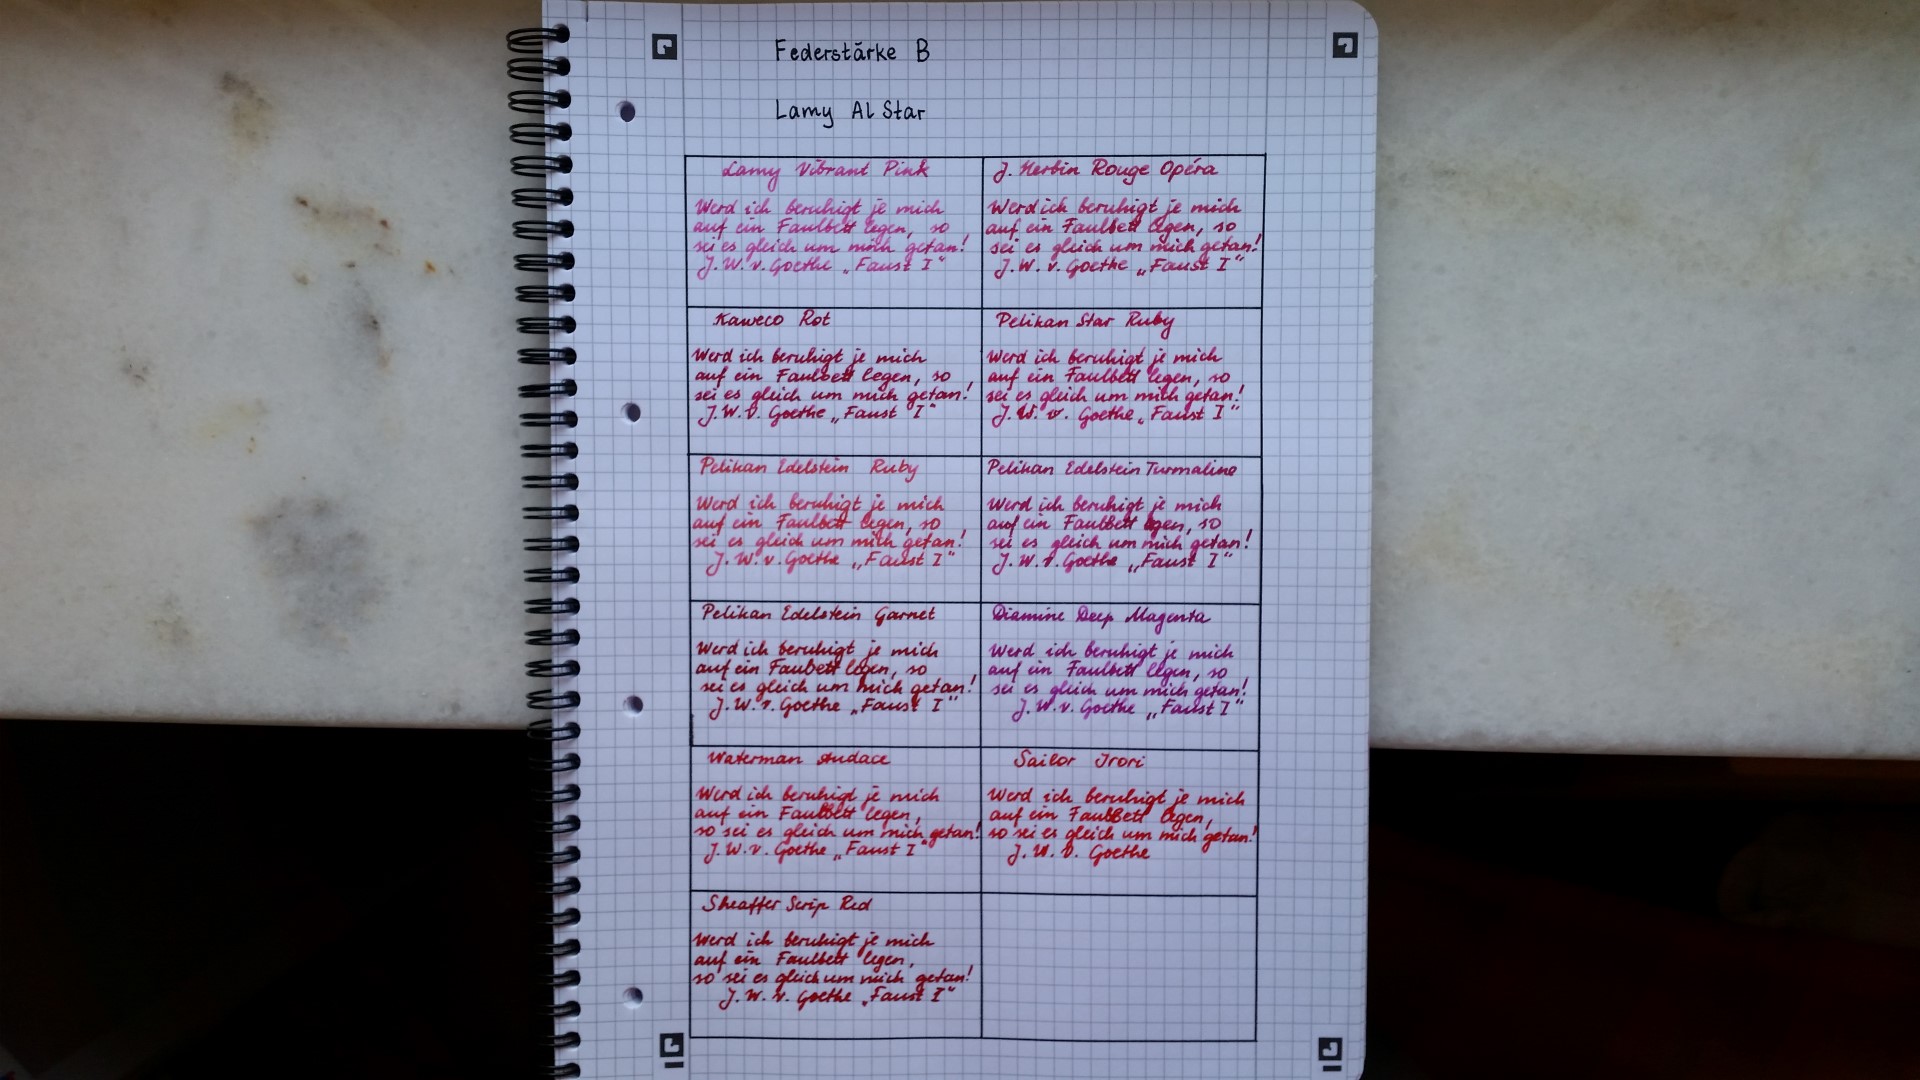 Federstärke B
Lamy Al Star
Lamy Vibrant Pink
Werd ich beruhigt je mich
auf ein Faulbett legen, so
sei es gleich um mich getan!
J. W. v. Goethe „Faust I“
J. Herbin Rouge Opéra
Werd ich beruhigt je mich
auf ein Faulbett legen, so
sei es gleich um mich getan!
J. W. v. Goethe „Faust I“
Kaweco Rot
Werd ich beruhigt je mich
auf ein Faulbett legen, so
sei es gleich um mich getan!
J. W. v. Goethe „Faust I“
Pelikan Star Ruby
Werd ich beruhigt je mich
auf ein Faulbett legen, so
sei es gleich um mich getan!
J. W. v. Goethe „Faust I“
Pelikan Edelstein Ruby
Werd ich beruhigt je mich
auf ein Faulbett legen, so
sei es gleich um mich getan!
J. W. v. Goethe „Faust I“
Pelikan Edelstein Turmaline
Werd ich beruhigt je mich
auf ein Faulbett legen, so
sei es gleich um mich getan!
J. W. v. Goethe „Faust I“
Pelikan Edelstein Garnet
Werd ich beruhigt je mich
auf ein Faubett legen, so
sei es gleich um mich getan!
J. W. v. Goethe „Faust I“
Diamine Deep Magenta
Werd ich beruhigt je mich
auf ein Faulbett legen, so
sei es gleich um mich getan!
J. W. v. Goethe „Faust I“
Waterman Audace
Werd ich beruhigt je mich
auf ein Faulbett legen,
so sei es gleich um mich getan!
J. W. v. Goethe „Faust I“
Sailor Irori
Werd ich beruhigt je mich
auf ein Faulbett legen,
so sei es gleich um mich getan!
J. W. v. Goethe
Sheaffer Scrip Red
Werd ich beruhigt je mich
auf ein Faulbett legen,
so sei es gleich um mich getan!
J. W. v. Goethe „Faust I“